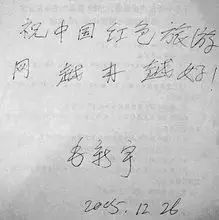 祝中国红色旅游
网越办越好！
2005.12.26